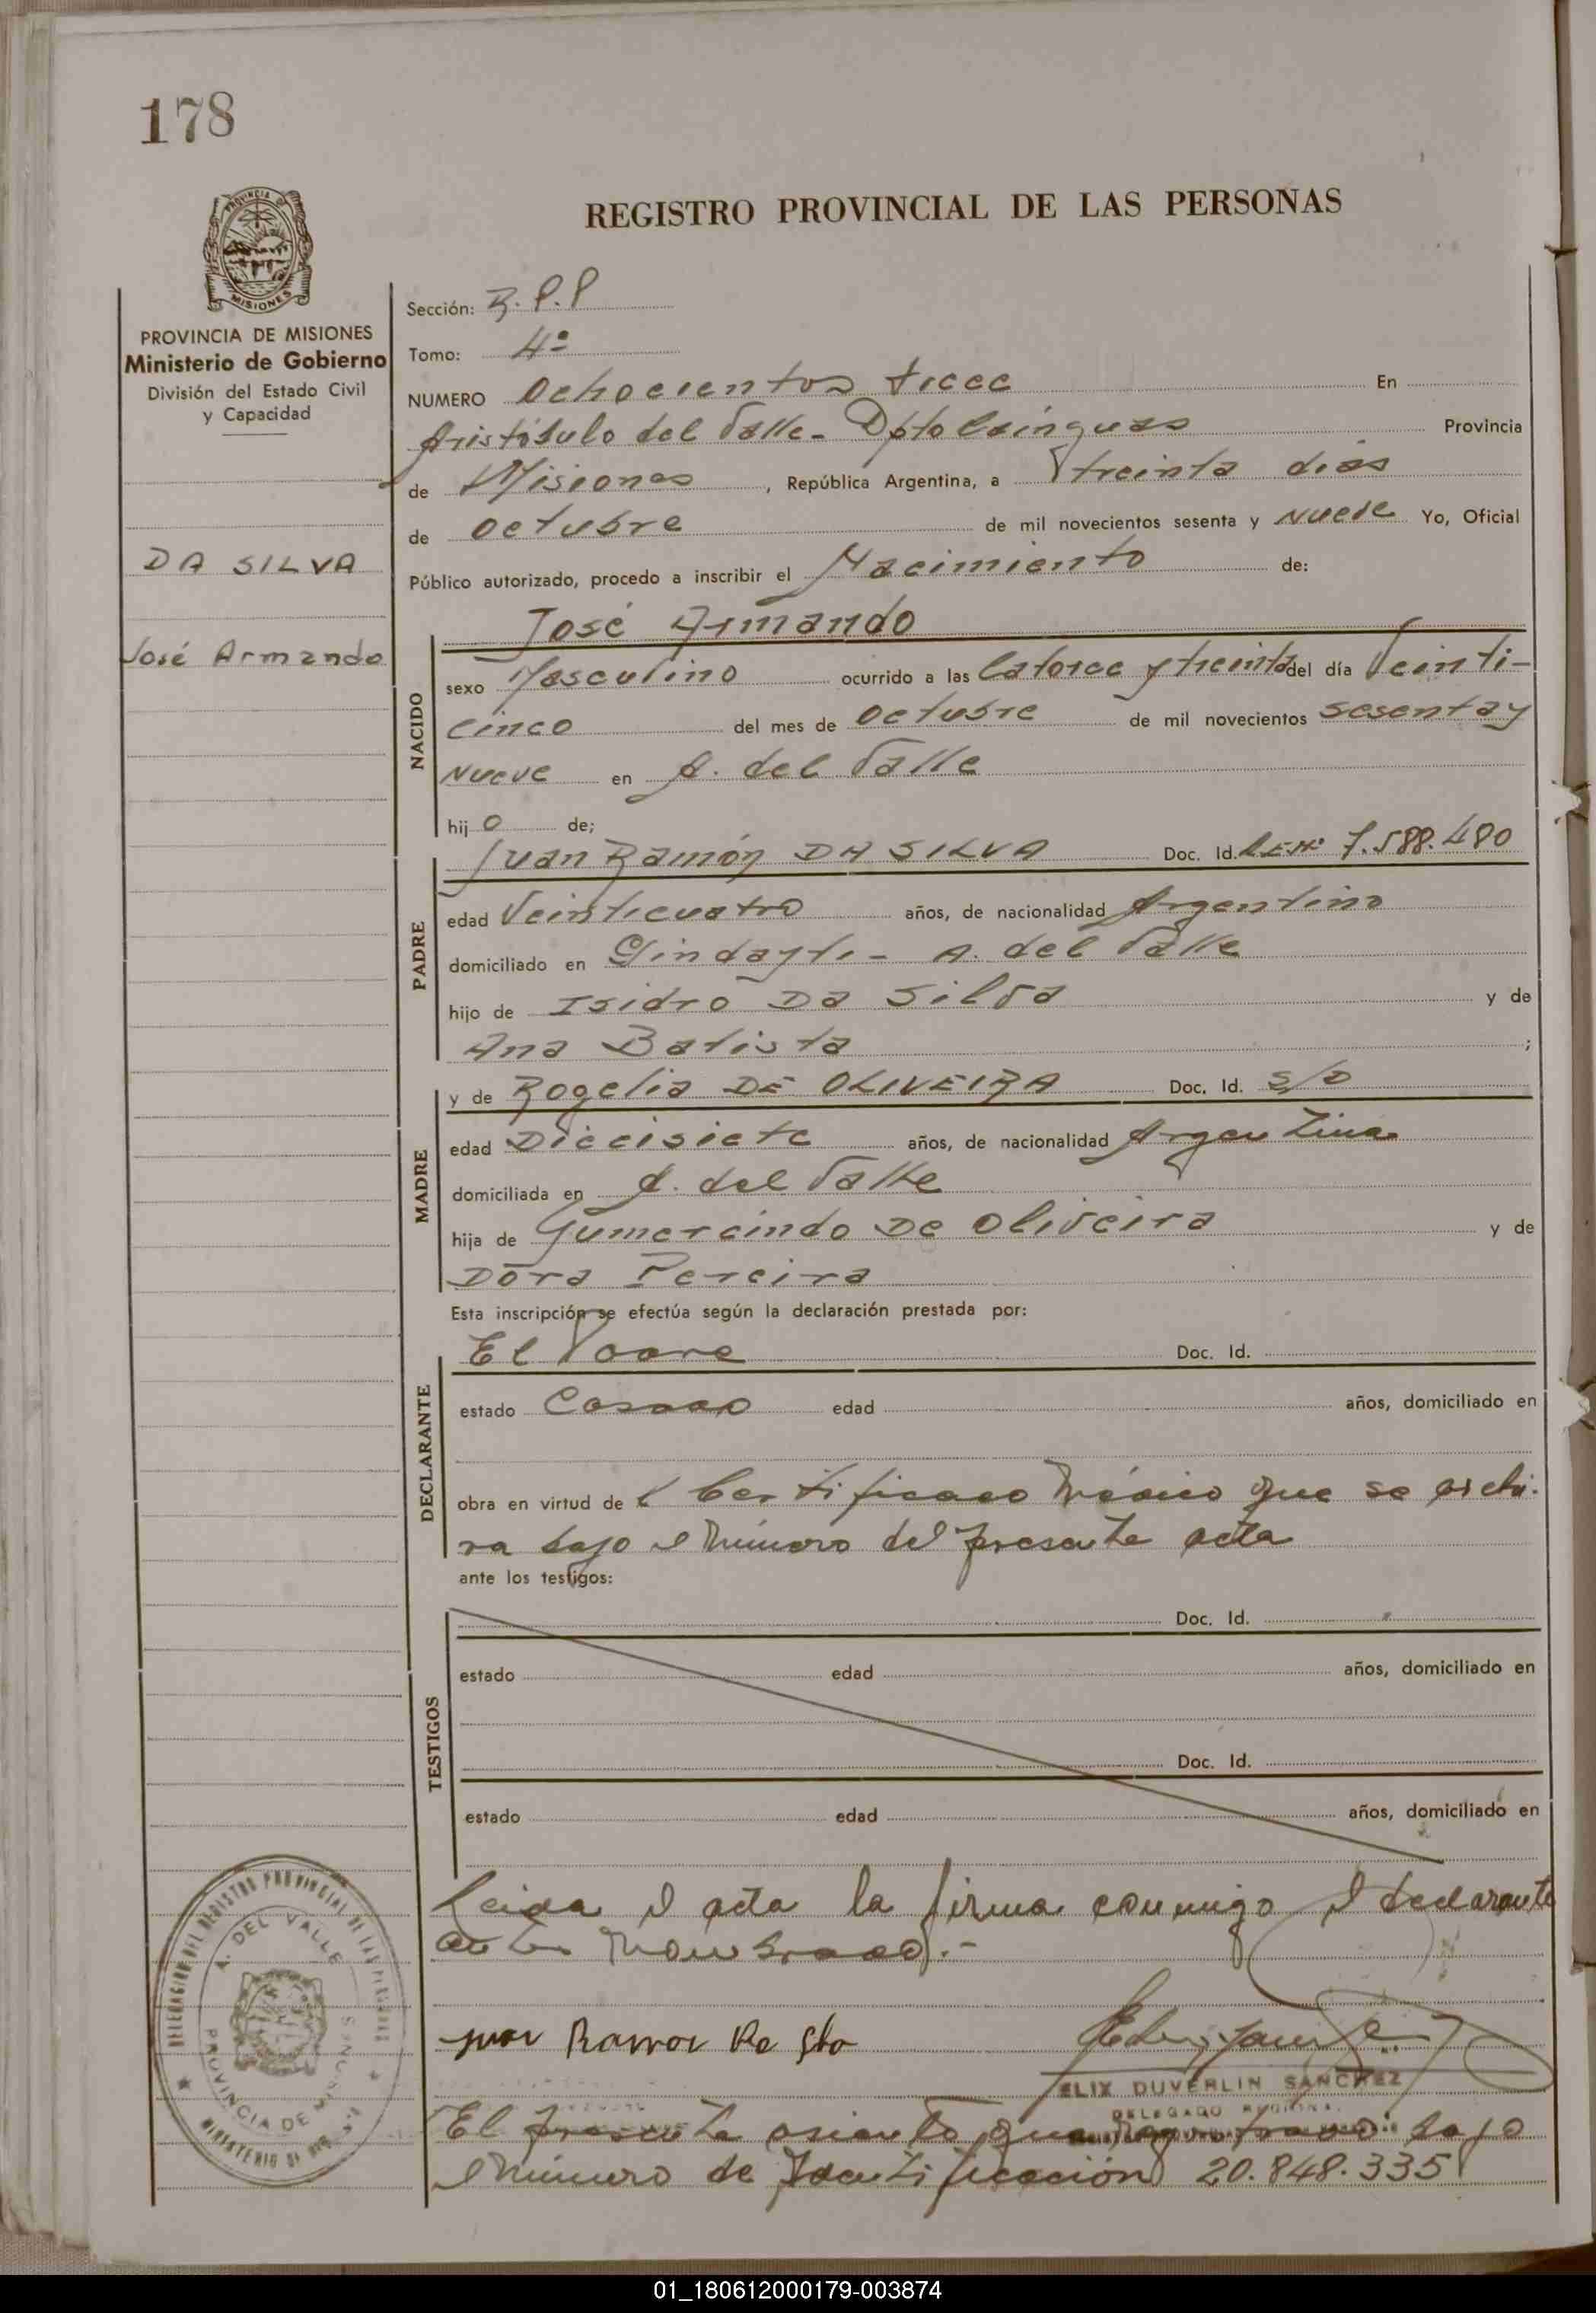 178
PROVINCIA DE
MISIONES
PROVINCIA DE MISIONES
Ministerio de Gobierno
División del Estado Civil
y Capacidad
DA SILVA
José Armando
REGISTRO PROVINCIAL DE LAS PERSONAS
Sección: R.P.P
Tomo: 4º
NUMERO Ochocientos trece En
Aristóbulo del Valle - Dpto Cainguas Provincia
de Misiones, República Argentina, a treinta dias
de octubre de mil novecientos sesenta y nueve Yo, Oficial
Público autorizado, procedo a inscribir el Nacimiento de:
José Armando
NACIDO
sexo Masculino ocurrido a las Catorce y treinta del día Veinti-
cinco del mes de octubre de mil novecientos sesenta y
nueve en A. del Valle
hijo de;
Juan Ramón DA SILVA Doc. Id. L.E.Nº 7.588.480
PADRE
edad Veinticuatro años, de nacionalidad Argentino
domiciliado en A. del Valle
hijo de Isidro Da Silva y de
Ana Batista ;
y de Rogelia DE OLIVEIRA Doc. Id. S/D
MADRE
edad Diecisiete años, de nacionalidad Argentina
domiciliada en A. del Valle
hija de Gumercindo De Oliveira y de
Dora Pereira
Esta inscripción se efectúa según la declaración prestada por:
El Padre Doc. Id.
DECLARANTE
estado Casado edad años, domiciliado en
obra en virtud de Certificado Médico que se archi-
va bajo el Número del presente acta
ante los testigos:
Doc. Id.
TESTIGOS
estado edad años, domiciliado en
Doc. Id.
estado edad años, domiciliado en
Leida el acta la firma conmigo el declarante
antes nombrado.-
ELIX DUVERLIN SANCHEZ
DELEGADO REGIONAL
El presente asiento bajo
el Número de Identificación 20.848.335
DELEGACION DEL REGISTRO PROVINCIAL DE LAS PERSONAS
A. DEL VALLE
PROVINCIA DE MISIONES
01_180612000179-003874